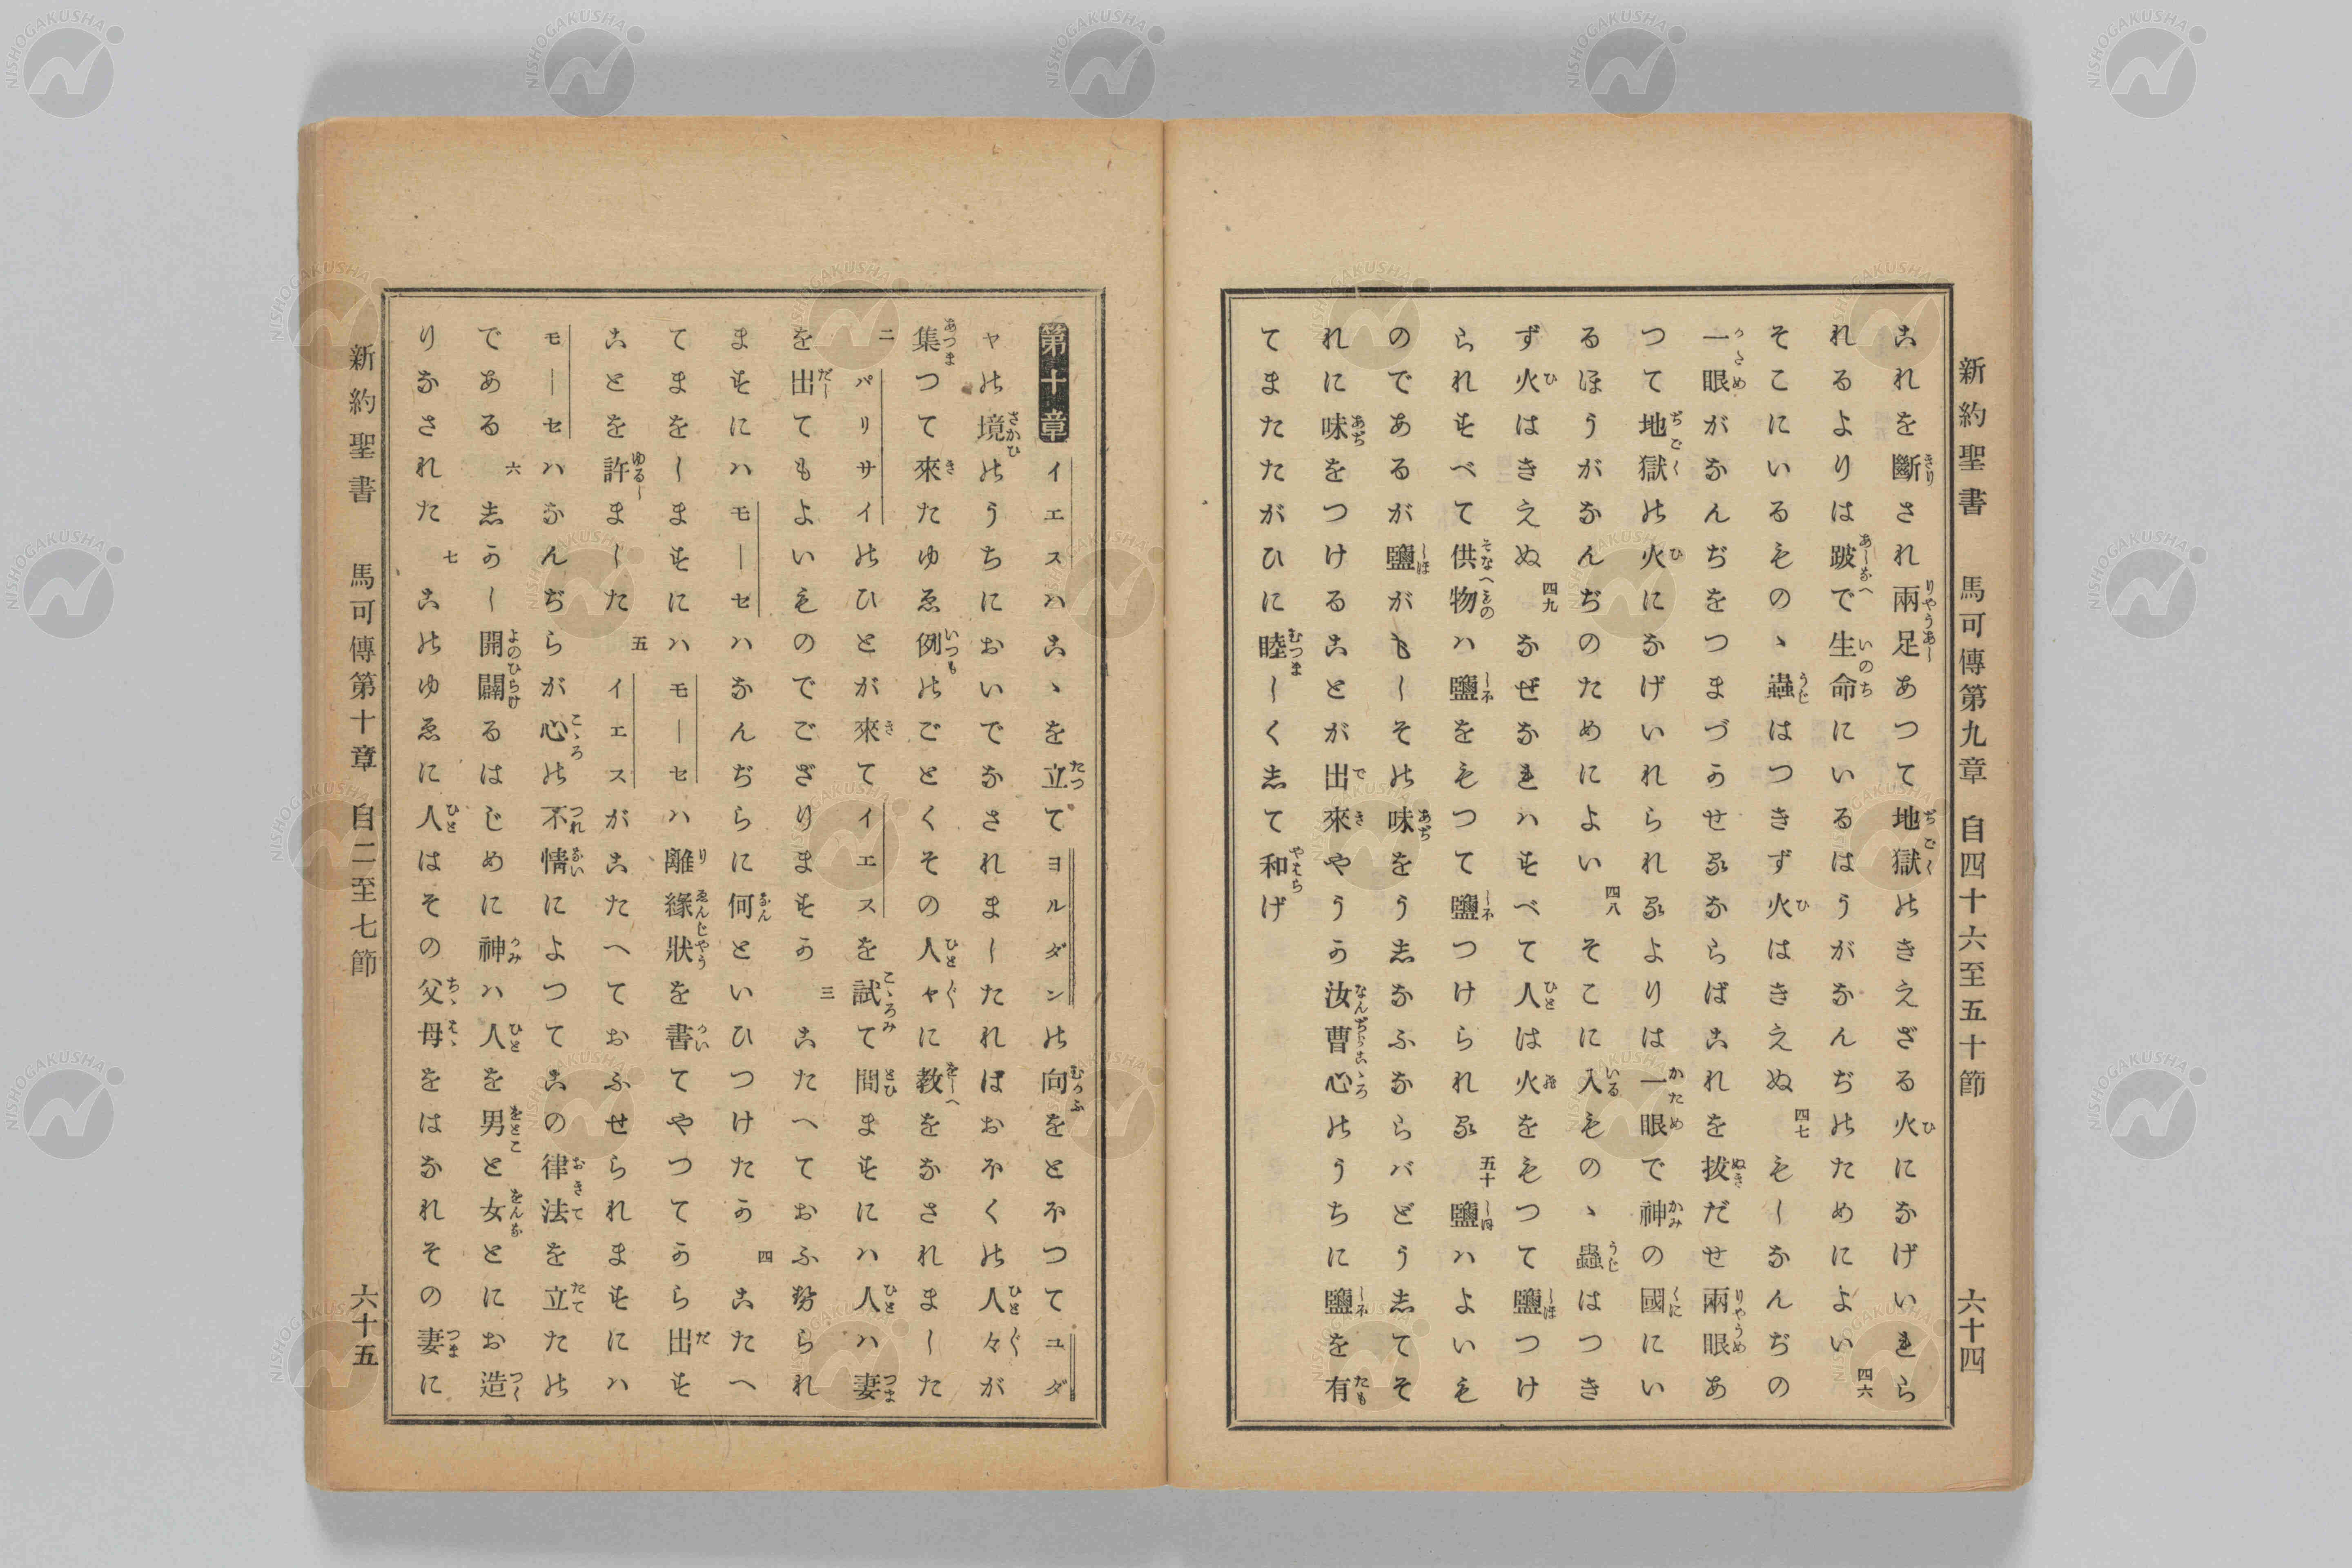 新約聖書 馬可傳第九章 自四十六至五十節 六十四
これを斷され兩足あつて地獄のきえざる火になげいれら
れるよりは跛で生命にいるはうがなんぢのためによい 四六
そこにいるものゝ蟲はつきず火はきえぬ 四七 もしなんぢの
一眼がなんぢをつまづかせるならばこれを拔だせ兩眼あ
つて地獄の火になげいれられるよりは一眼で神の國にい
るほうがなんぢのためによい 四八 そこに入ものゝ蟲はつき
ず火はきえぬ 四九 なぜなれハすべて人は火をもつて鹽つけ
られすべて供物ハ鹽をもつて鹽つけられる 五十 鹽ハよいも
のであるが鹽がもしその味をうしなふならバどうしてそ
れに味をつけることが出來やうか汝曹心のうちに鹽を有
てまたたがひに睦しくして和げ
第十章 イエスハこゝを立てヨルダンの向をとほつてユダ
ヤの境のうちにおいでなされましたればおほくの人々が
集つて來たゆゑ例のごとくその人々に教をなされました
二 パリサイのひとが來てイエスを試て問ますにハ人ハ妻
を出てもよいものでござりますか 三 こたへておふせられ
ますにハモーセハなんぢらに何といひつけたか 四 こたへ
てまをしますにハモーセハ離緣狀を書てやつてから出す
ことを許ました 五 イエスがこたへておふせられますにハ
モーセハなんぢらが心の不情によつてこの律法を立たの
である 六 しかし開闢るはじめに神ハ人を男と女とにお造
りなされた 七 このゆゑに人はその父母をはなれその妻に
新約聖書 馬可傳第十章 自二至七節 六十五